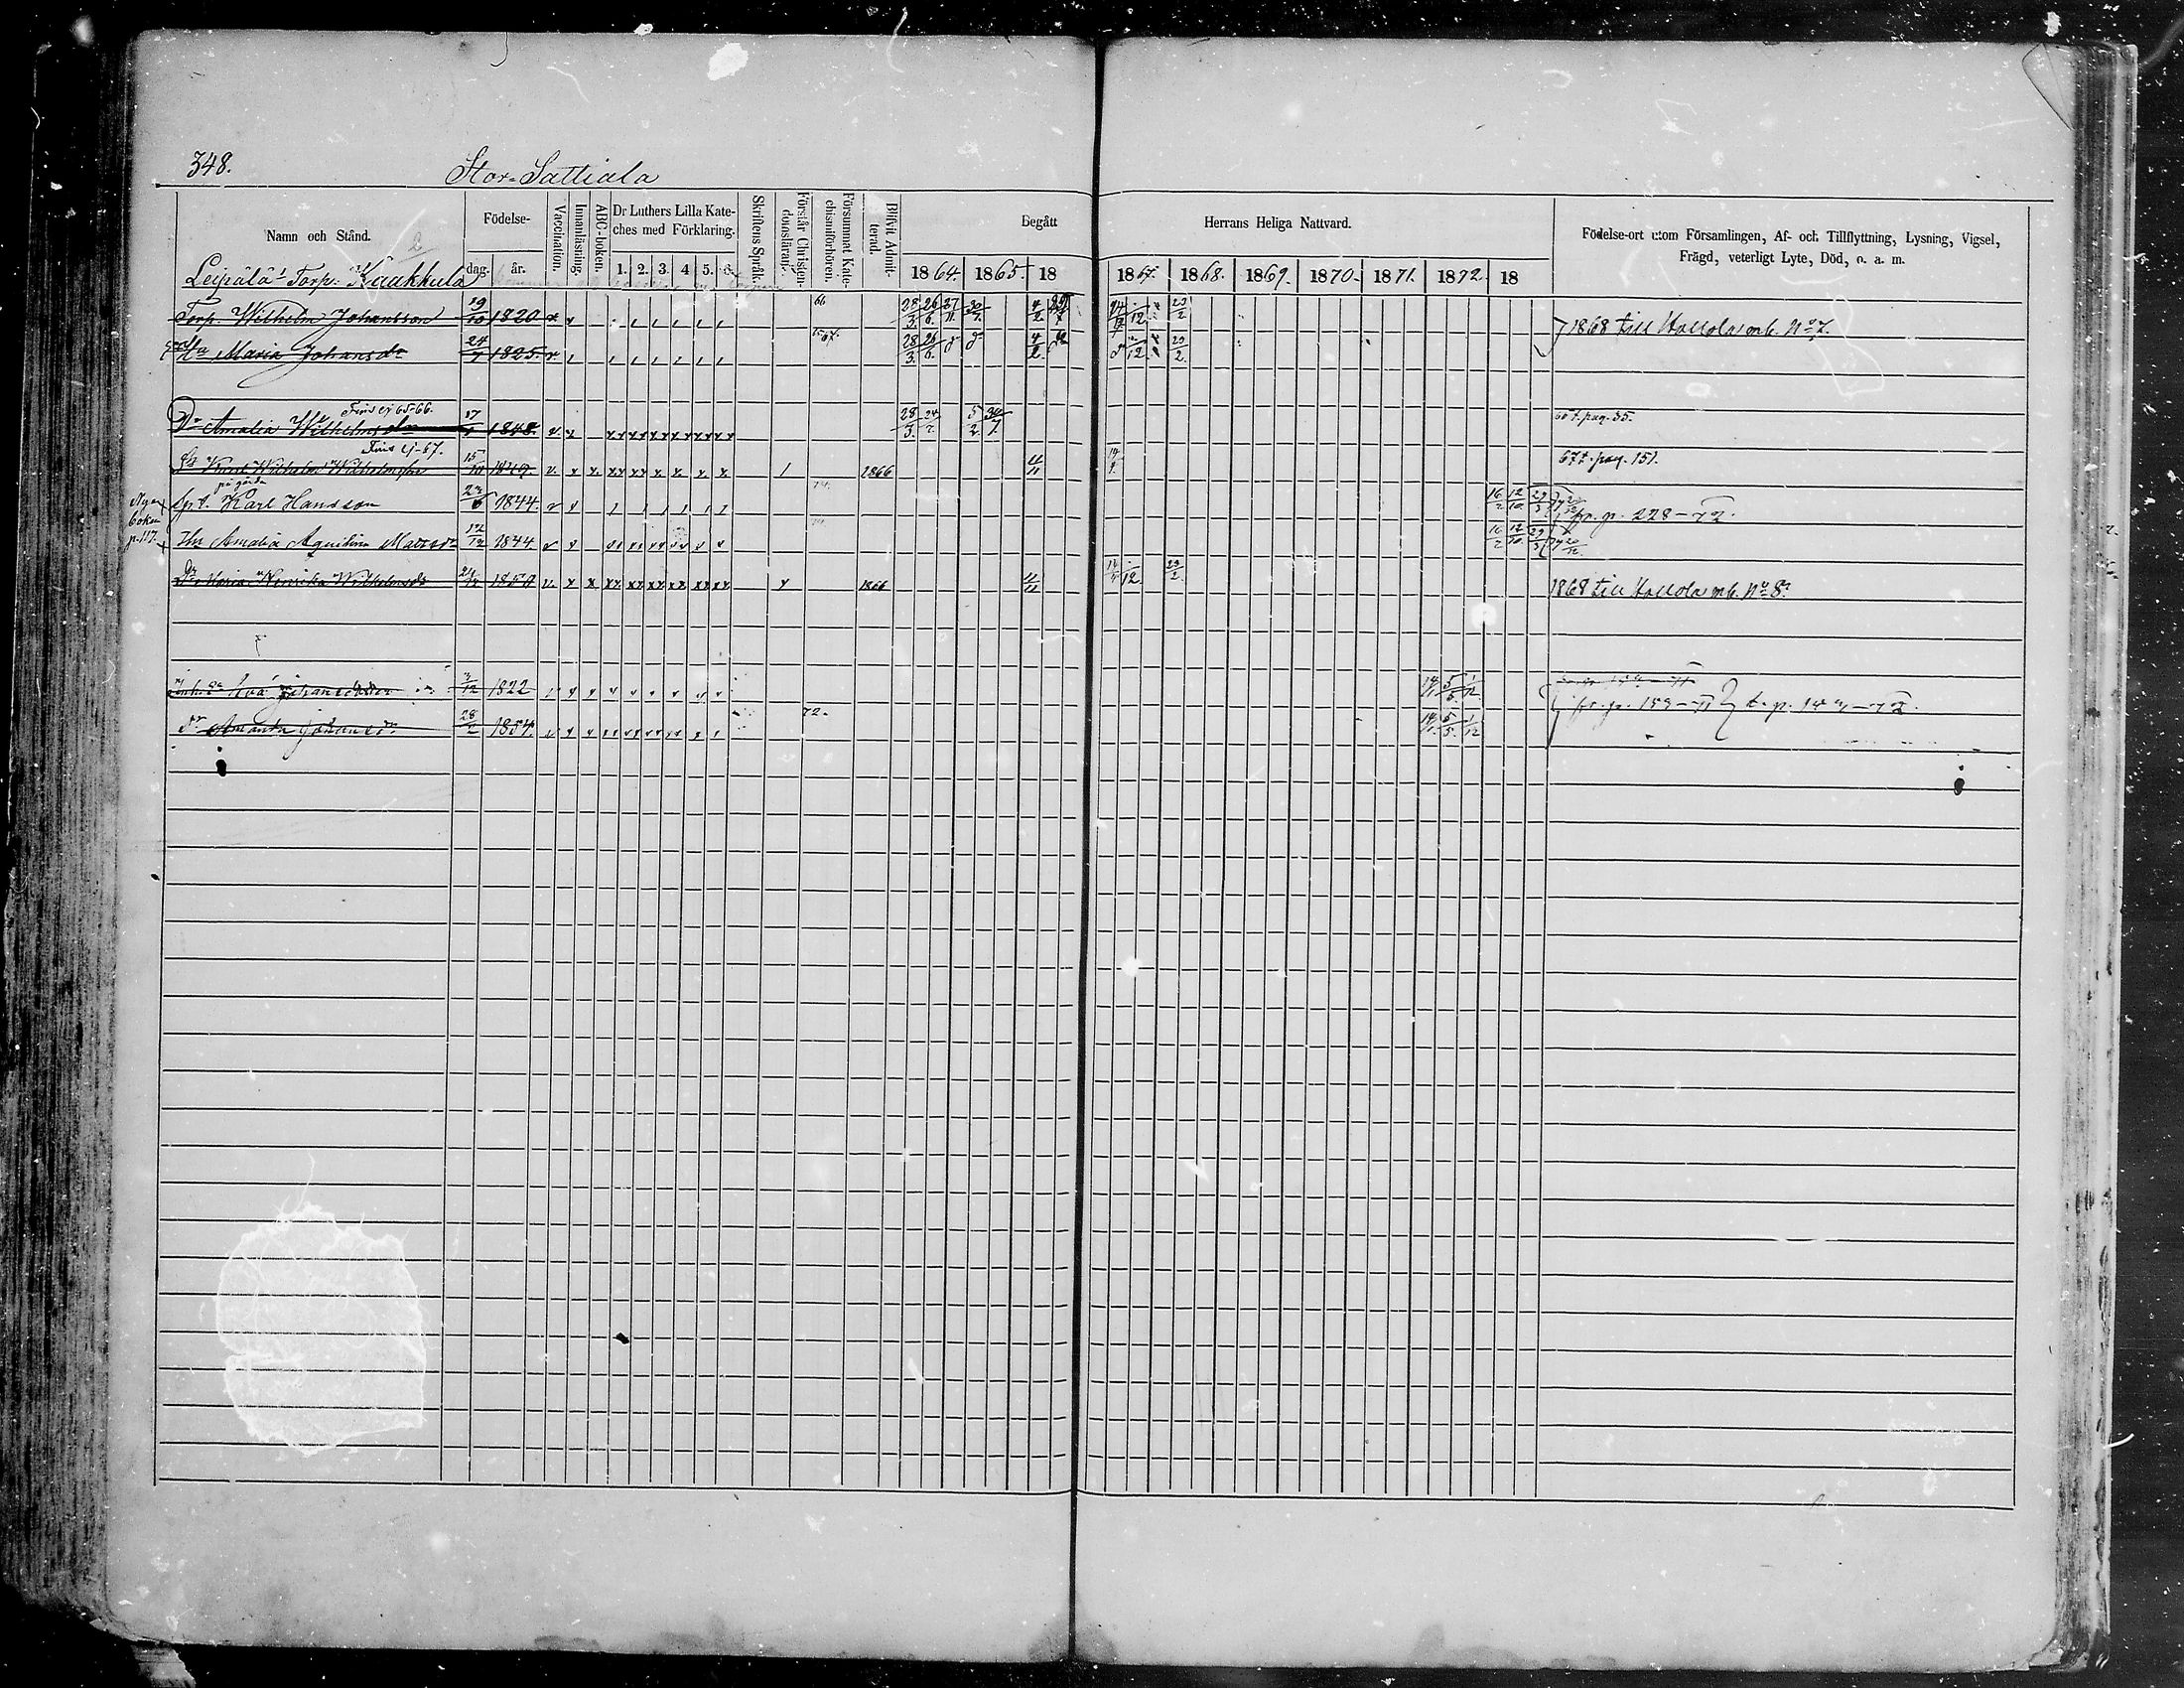 348. Stor-Sattiala
Namn och Stånd. Födelse- dag. år. Vaccination. Innanläsning. ABC-boken. Dr Luthers Lilla Kate- ches med Förklaring. 1. 2. 3. 4 5. 6. Skriftens Språk. Förstår Christen- domsläran. Försummat Kate- chismiförhören. Blifvit Admit- terad. Begått Herrans Heliga Nattvard. Födelse-ort utom Församlingen, Af- och Tillflyttning, Lysning, Vigsel, Frägd, veterligt Lyte, Död, o. a. m.
1864. 1865. 18 1867. 1868. 1869. 1870. 1871. 1872. 18
Leipälä Torp. Kaukkula
Torp. Wilhelm Johansson 19/10 1820 66 28/3 26/6 27/11 30/7 4/2 23/2 1868 till Hollola mb. No 7.
Hu Maria Johansdr 24/7 1825. 28/3 26/6 4/2 23/2
Fins ej 65-66.
Dr Amalia Wilhelmsdr 17/1 1848. 28/3 5/2 30/7 t. pag. 35.
Fins ej 67.
Knut Wilhelm Wilhelmsson 15/10 1849 1866 11/11 67 t. pag. 151.
på gårda
Nya boken p. 117.
Karl Hansson 23/6 1844. 16/2 12/10 29/3 fr. p. 228-72.
Hu Amalia Aqvilina Mattsdr 12/12 1844 16/2 12/10 29/3 20/12
Dr Maria Henrika Wilhelmsdr 1850 1866 11/11 23/2 1868 till Hollola mb. No 8.
Inh. Eva Johansdotter 3/12 1822 14/1 5/5 1/12
fr. p. 159-71 t. p. 149-72.
Dr Amanda Johansdr 28/2 1854. 72. 14/1 5/5 1/12